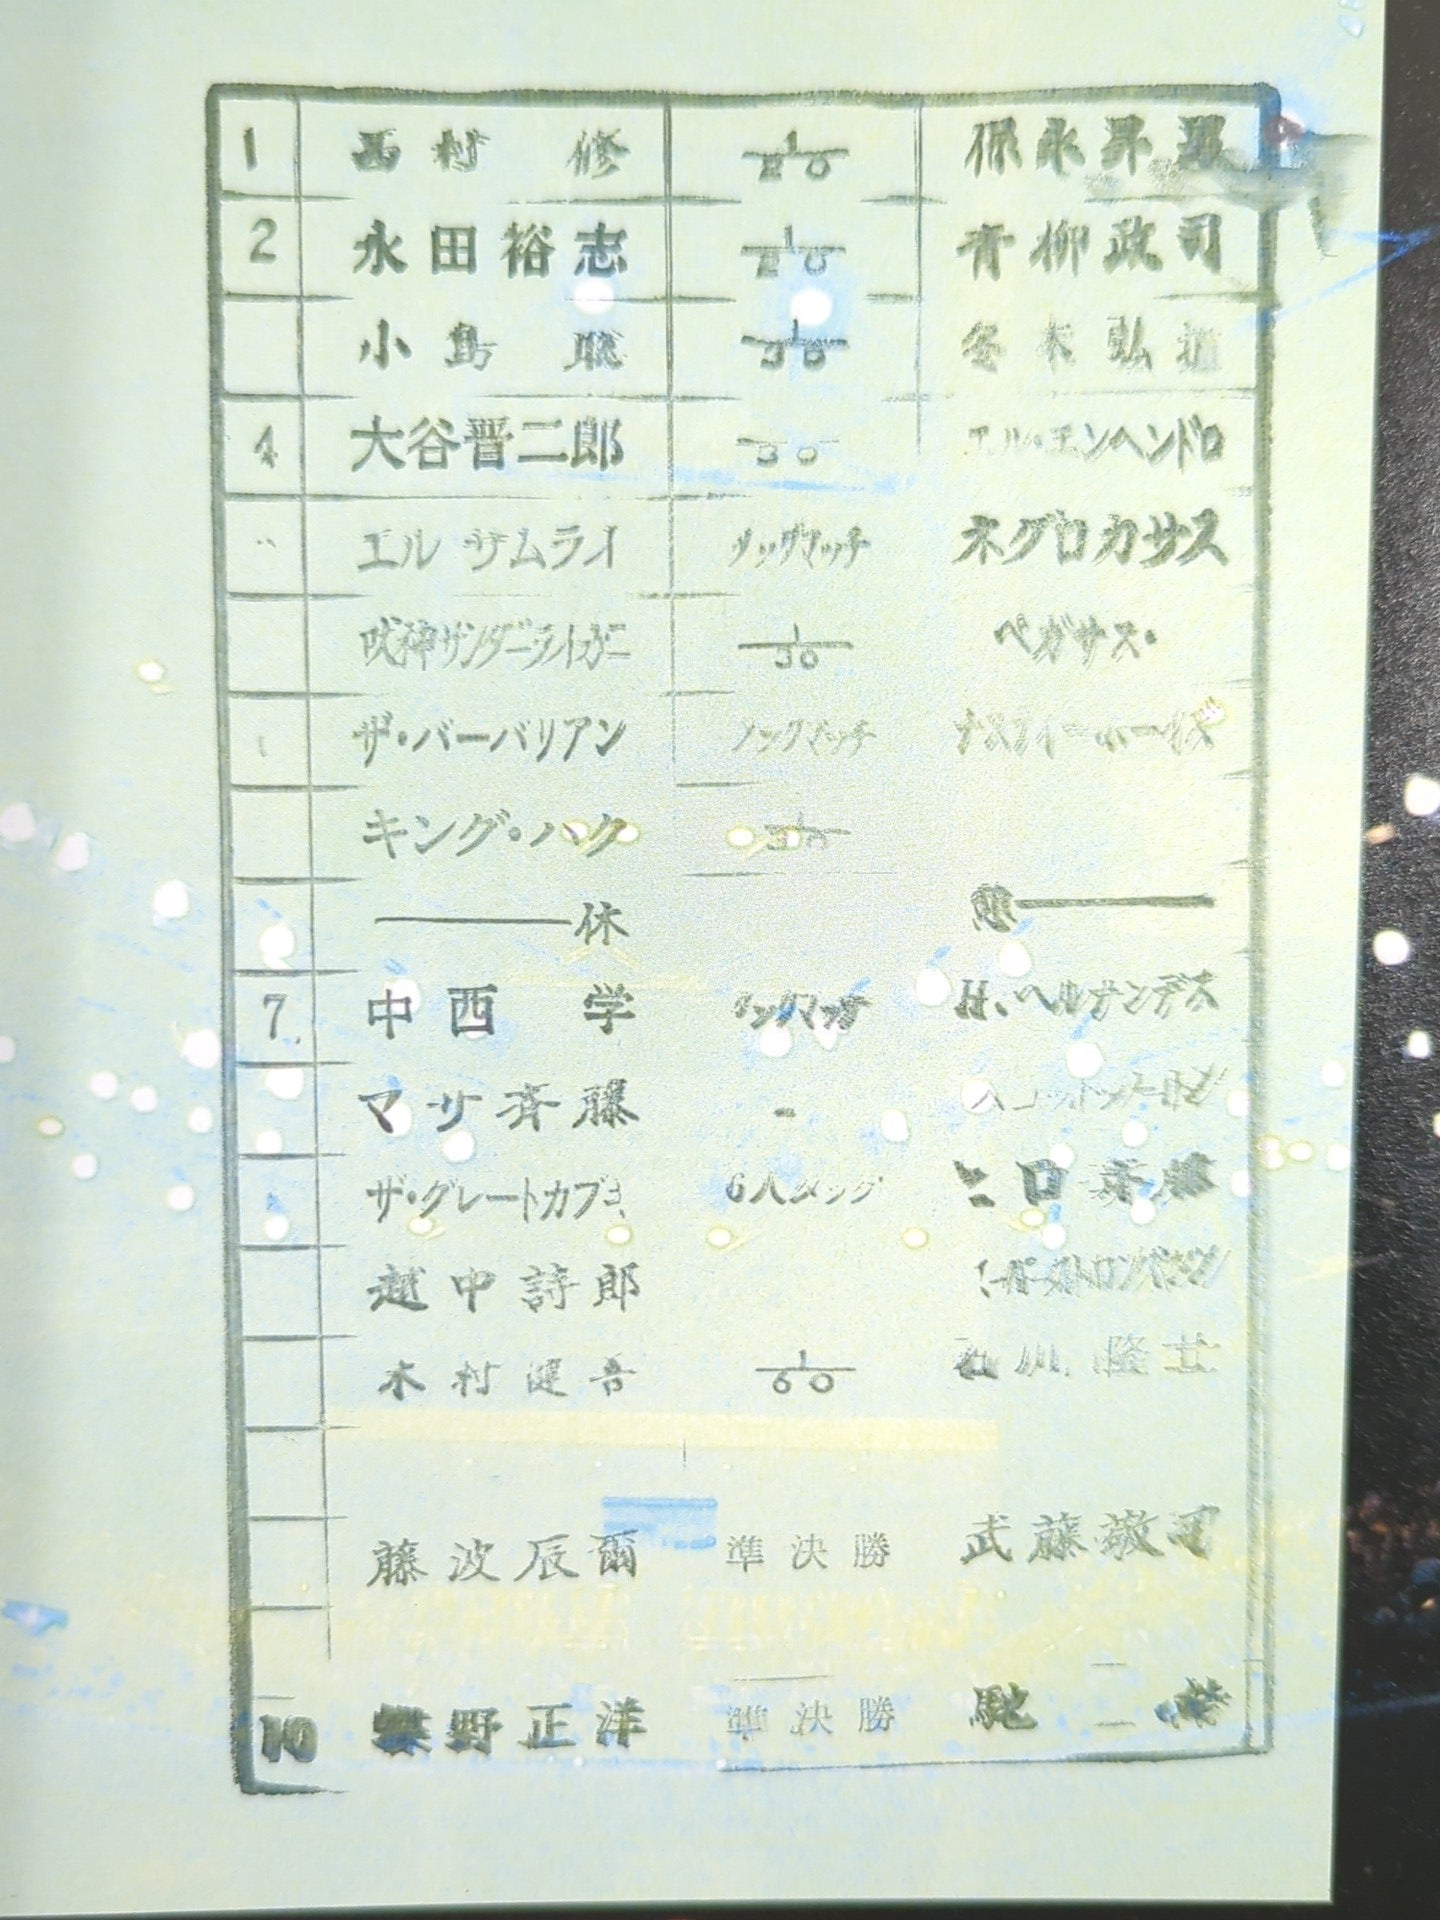 1 西村 修 1/20 保永昇男
2 永田裕志 1/20 青柳政司
小島 聡 1/30 冬木弘道
4 大谷晋二郎 30 エル・エンヘンドロ
エル サムライ タッグマッチ ネグロカサス
獣神サンダーライガー 1/30 ペガサス・
ザ・バーバリアン タッグマッチ ナスティーボーイズ
キング・ハク
休 憩
7 中西 学 タッグマッチ H、ヘルナンデス
マサ斉藤 スコットノートン
ザ・グレートカブキ 6人タッグ ヒロ斉藤
越中詩郎
木村健吾 1/60
藤波辰爾 準決勝 武藤敬司
10 蝶野正洋 準決勝 馳